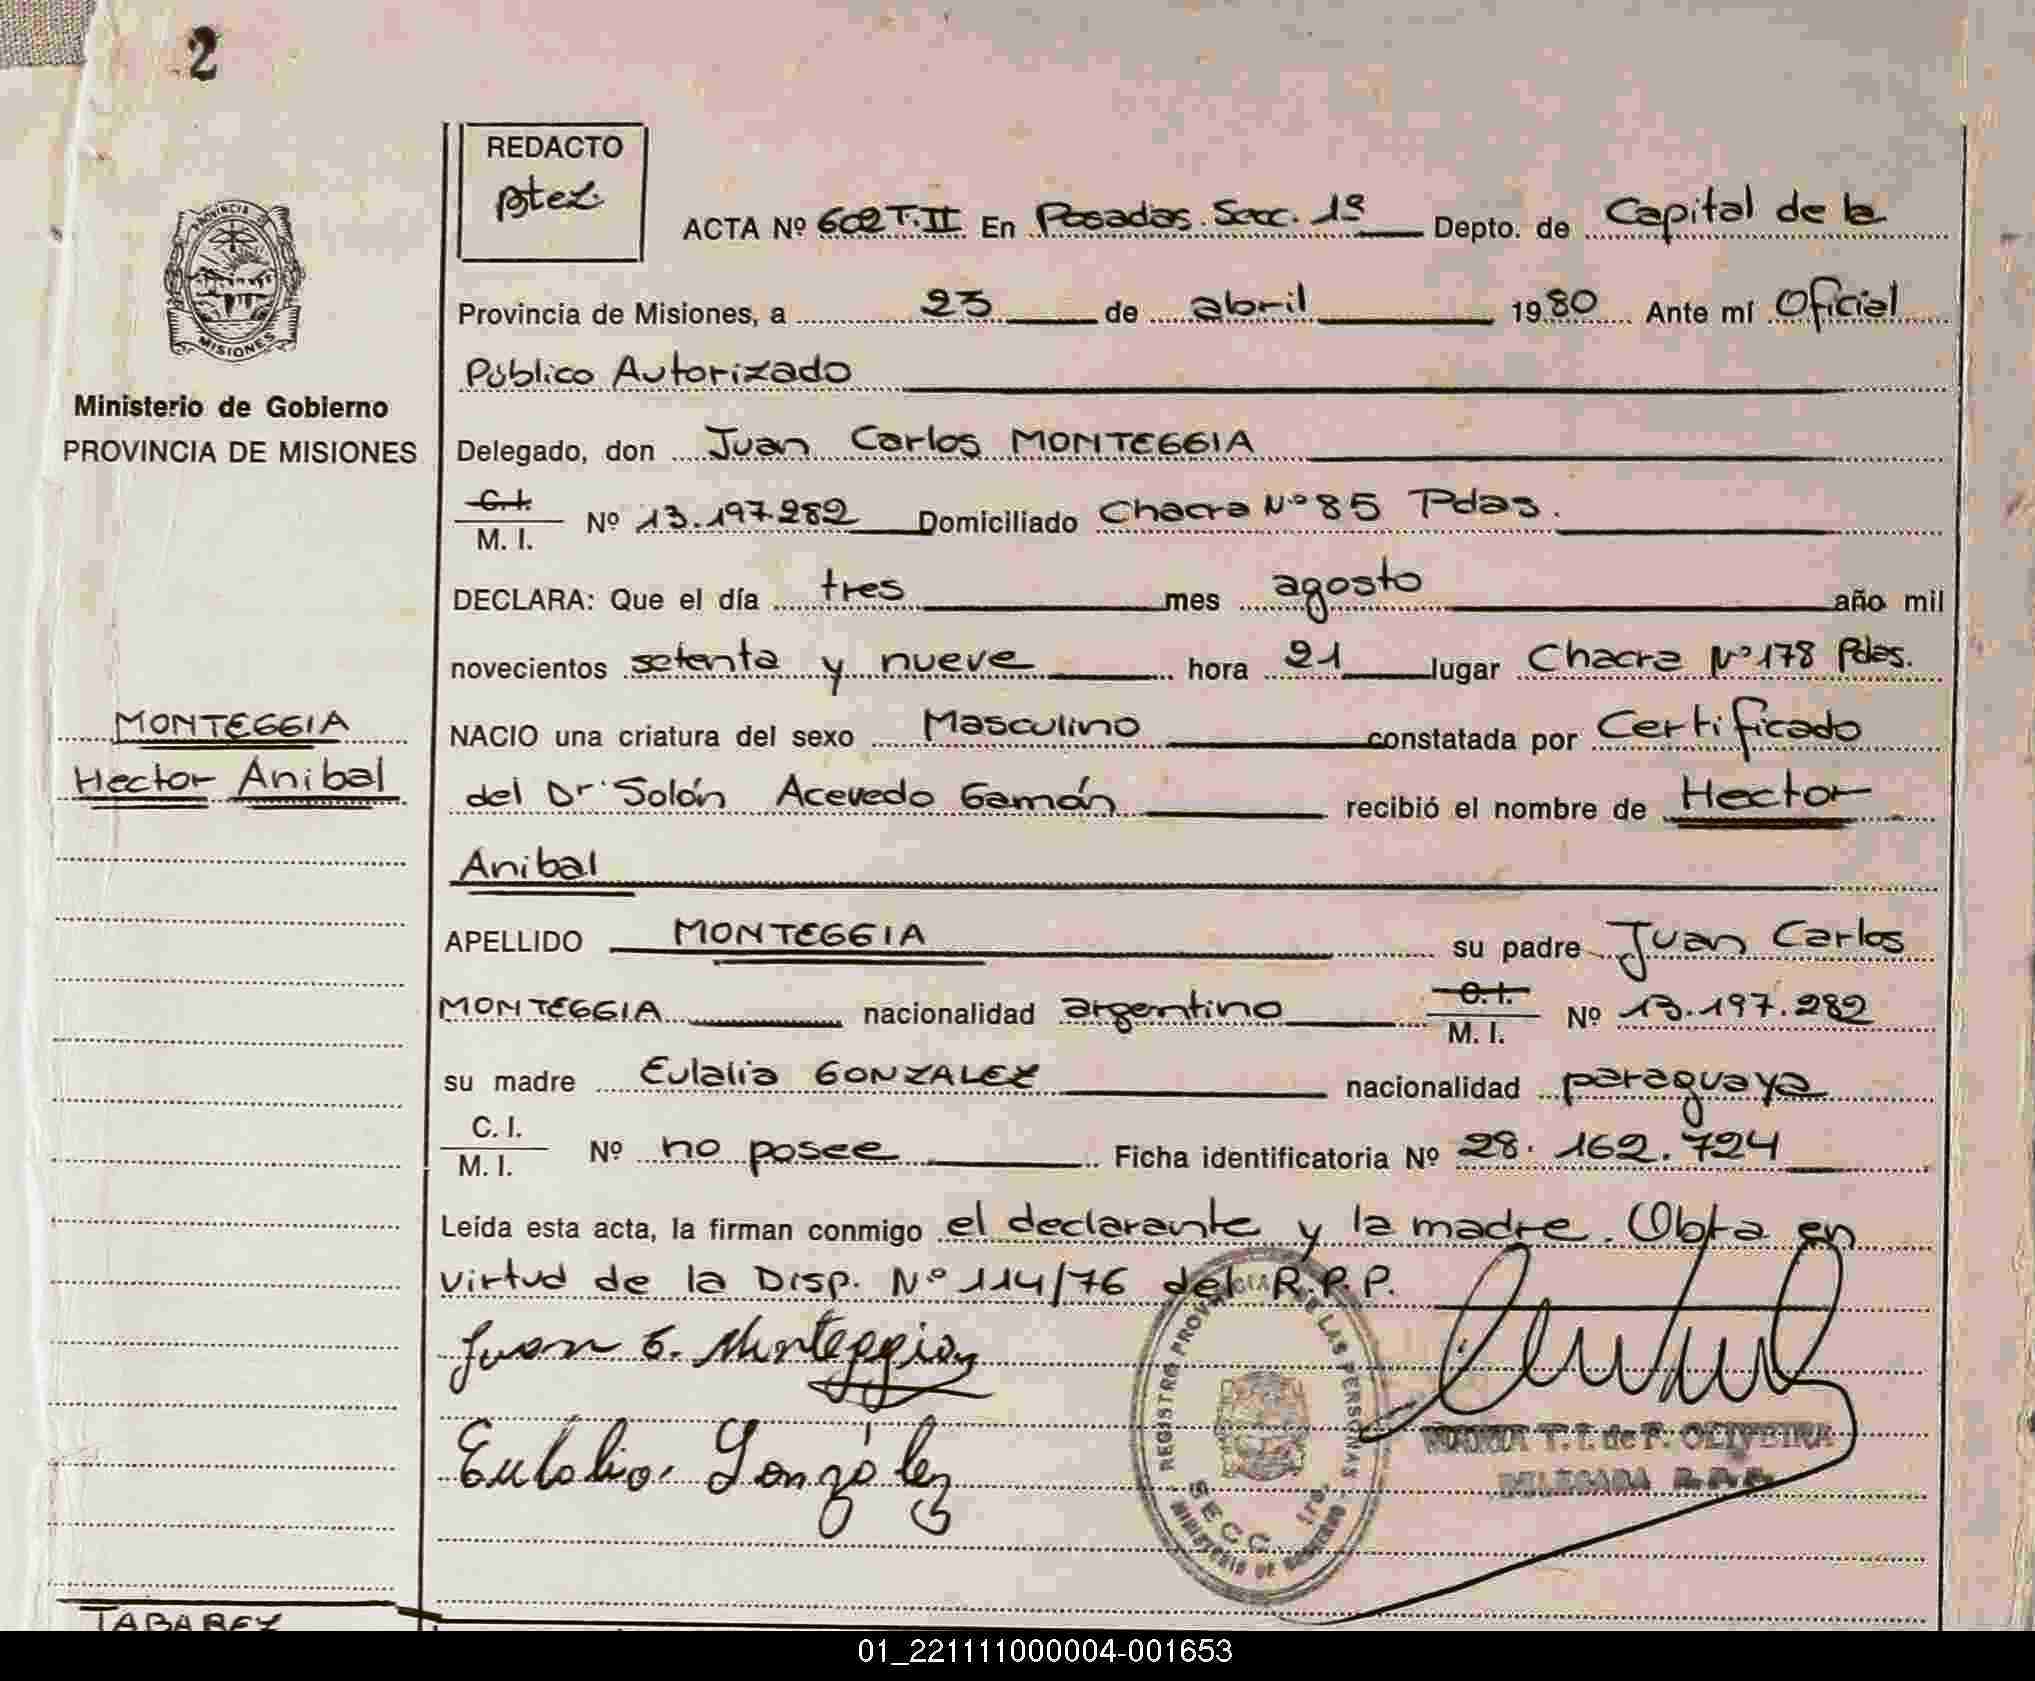 2
REDACTO
PROVINCIA
MISIONES
Ministerio de Gobierno
PROVINCIA DE MISIONES
ACTA Nº 602 T. II En Posadas. Secc. 1ª Depto. de Capital de la
Provincia de Misiones, a 23 de abril 1980 Ante mí Oficial
Público Autorizado
Delegado, don Juan Carlos MONTEGGIA
C. I.
M. I. Nº 13.197.282 Domiciliado Chacra Nº 85 Pdas.
DECLARA: Que el día tres mes agosto año mil
novecientos setenta y nueve hora 21 lugar Chacra Nº 178 Pdas.
MONTEGGIA
Hector Anibal
NACIO una criatura del sexo Masculino constatada por Certificado
del Dr Solón Acevedo Gamón recibió el nombre de Hector
Anibal
APELLIDO MONTEGGIA su padre Juan Carlos
MONTEGGIA nacionalidad argentino C. I. M. I. Nº 13.197.282
su madre Eulalia GONZALEZ nacionalidad paraguaya
C. I.
M. I. Nº no posee Ficha identificatoria Nº 28.162.724
Leída esta acta, la firman conmigo el declarante y la madre. Obra en
virtud de la Disp. Nº 114/76 del R.P.P.
Juan C. Monteggia
Eulalia González
REGISTRO PROVINCIAL DE LAS PERSONAS
SECC. 1ra.
MINISTERIO DE GOBIERNO
T. I. de F. OLIVEIRA
DELEGADA R.P.P.
TABAREZ
01_221111000004-001653